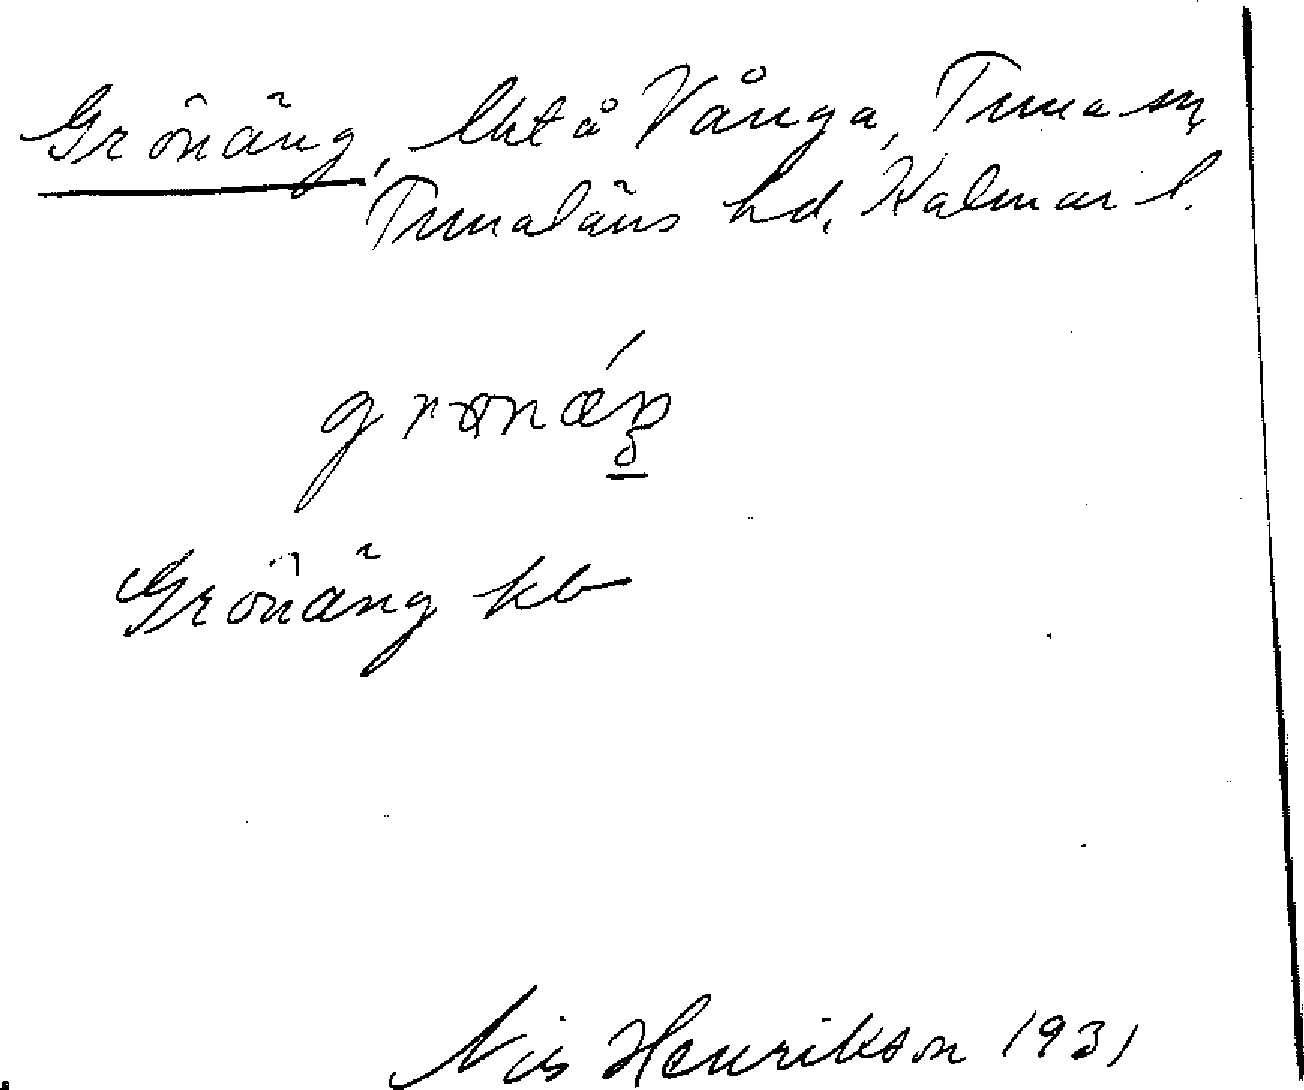 Grönäng, lht å Vånga, Tuna sn
Tunaläns hd, Kalmar l.
Grönäng kb
Nils Henrikson 1931